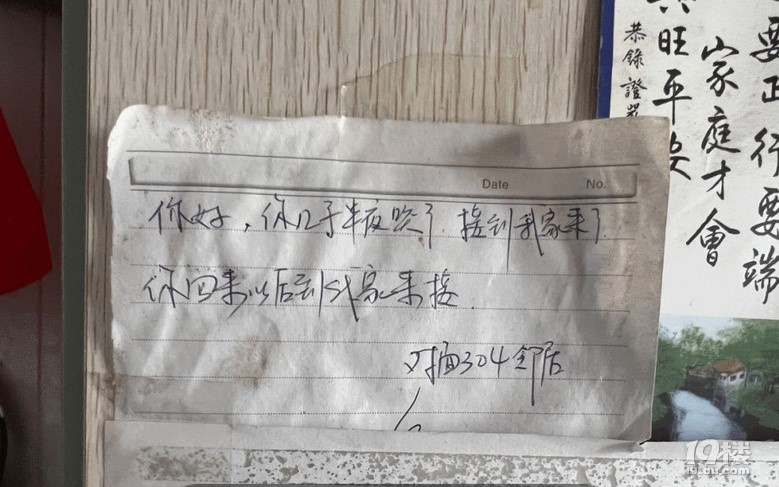 Date No.
你好，你儿子半夜哭了.接到我家来了.
你回来以后到我家来接.
对面304邻居
恭錄證嚴
要正行要端
家庭才會
旺平安
19楼
19lou.com